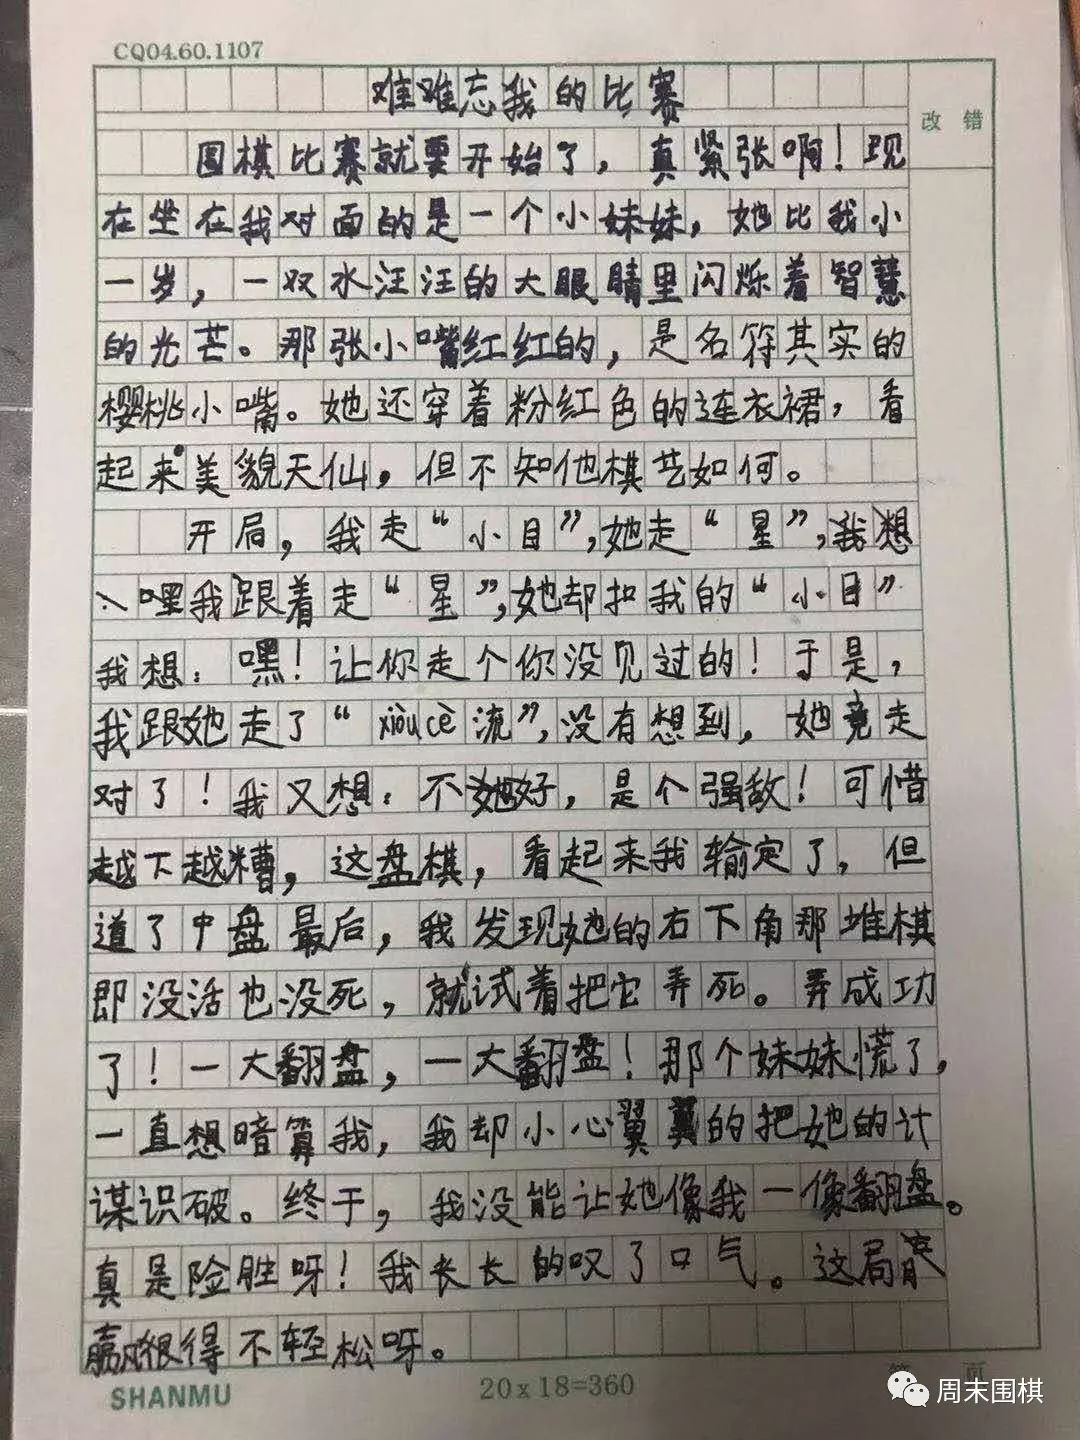 CQ04.60.1107
难难忘我的比赛
改 错
围棋比赛就要开始了，真紧张啊！现
在坐在我对面的是一个小妹妹，她比我小
一岁，一双水汪汪的大眼睛里闪烁着智慧
的光芒。那张小嘴红红的，是名符其实的
樱桃小嘴。她还穿着粉红色的连衣裙，看
起来美貌天仙，但不知他棋艺如何。
开局，我走“小目”，她走“星”，我想
嘿我跟着走“星”，她却扣我的“小目”
我想：嘿！让你走个你没见过的！于是，
我跟她走了“xiǒucè流”，没有想到，她竟走
对了！我又想：不好，是个强敌！可惜
越下越糟，这盘棋，看起来我输定了，但
道了中盘最后，我发现她的右下角那堆棋
即没活也没死，就试着把它弄死。弄成功
了！一大翻盘，一大翻盘！那个妹妹慌了，
一直想暗算我，我却小心翼翼的把她的计
谋识破。终于，我没能让她像我一像翻盘。
真是险胜呀！我长长的叹了口气。这局
赢很得不轻松呀。
SHANMU
20x18=360
页
周末围棋